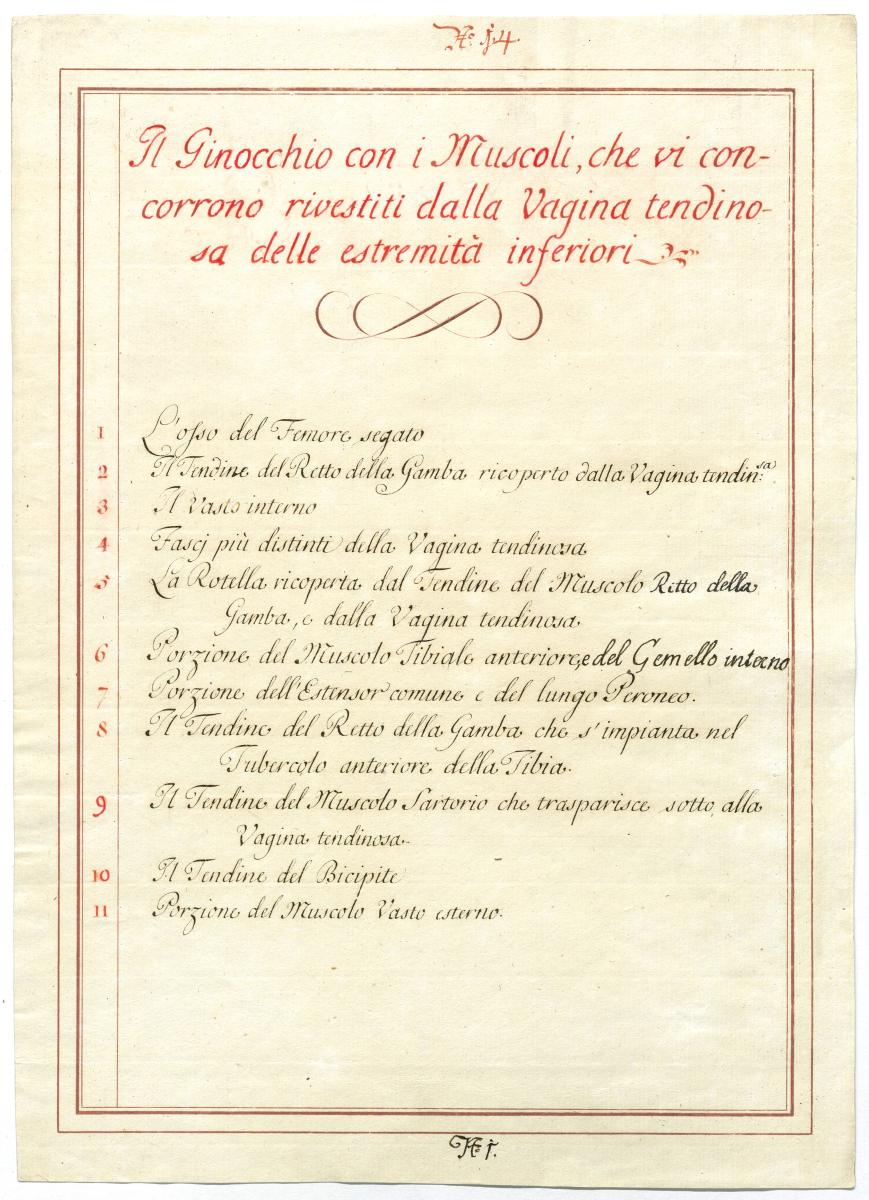 N.º 14.
Il Ginocchio con i Muscoli, che vi con-
corrono rivestiti dalla Vagina tendino-
sa delle estremità inferiori
1 L'osso del Femore segato
2 Il Tendine del Retto della Gamba ricoperto dalla Vagina tendin.sa
3 Il Vasto interno
4 Fascj più distinti della Vagina tendinosa
5 La Rotella ricoperta dal Tendine del Muscolo Retto della
Gamba, e dalla Vagina tendinosa
6 Porzione del Muscolo Tibiale anteriore, e del Gemello interno
7 Porzione dell'Estensor comune e del lungo Peroneo.
8 Il Tendine del Retto della Gamba che s'impianta nel
Tubercolo anteriore della Tibia.
9 Il Tendine del Muscolo Sartorio che trasparisce sotto alla
Vagina tendinosa.
10 Il Tendine del Bicipite
11 Porzione del Muscolo Vasto esterno.
N.º 1.